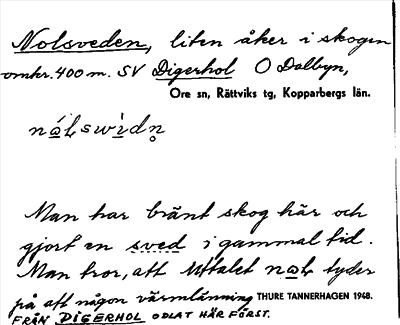 Nolsveden, liten åker i skogen
omkr. 400 m. SV Digerhol O Dalbyn,
Ore sn, Rättviks tg, Kopparbergs län.
Man har bränt skog här och
gjort en sved i gammal tid.
Man tror, att uttalet tyder
på att någon värmlänning THURE TANNERHAGEN 1948.
FRÅN DIGERHOL ODLAT HÄR FÖRST.